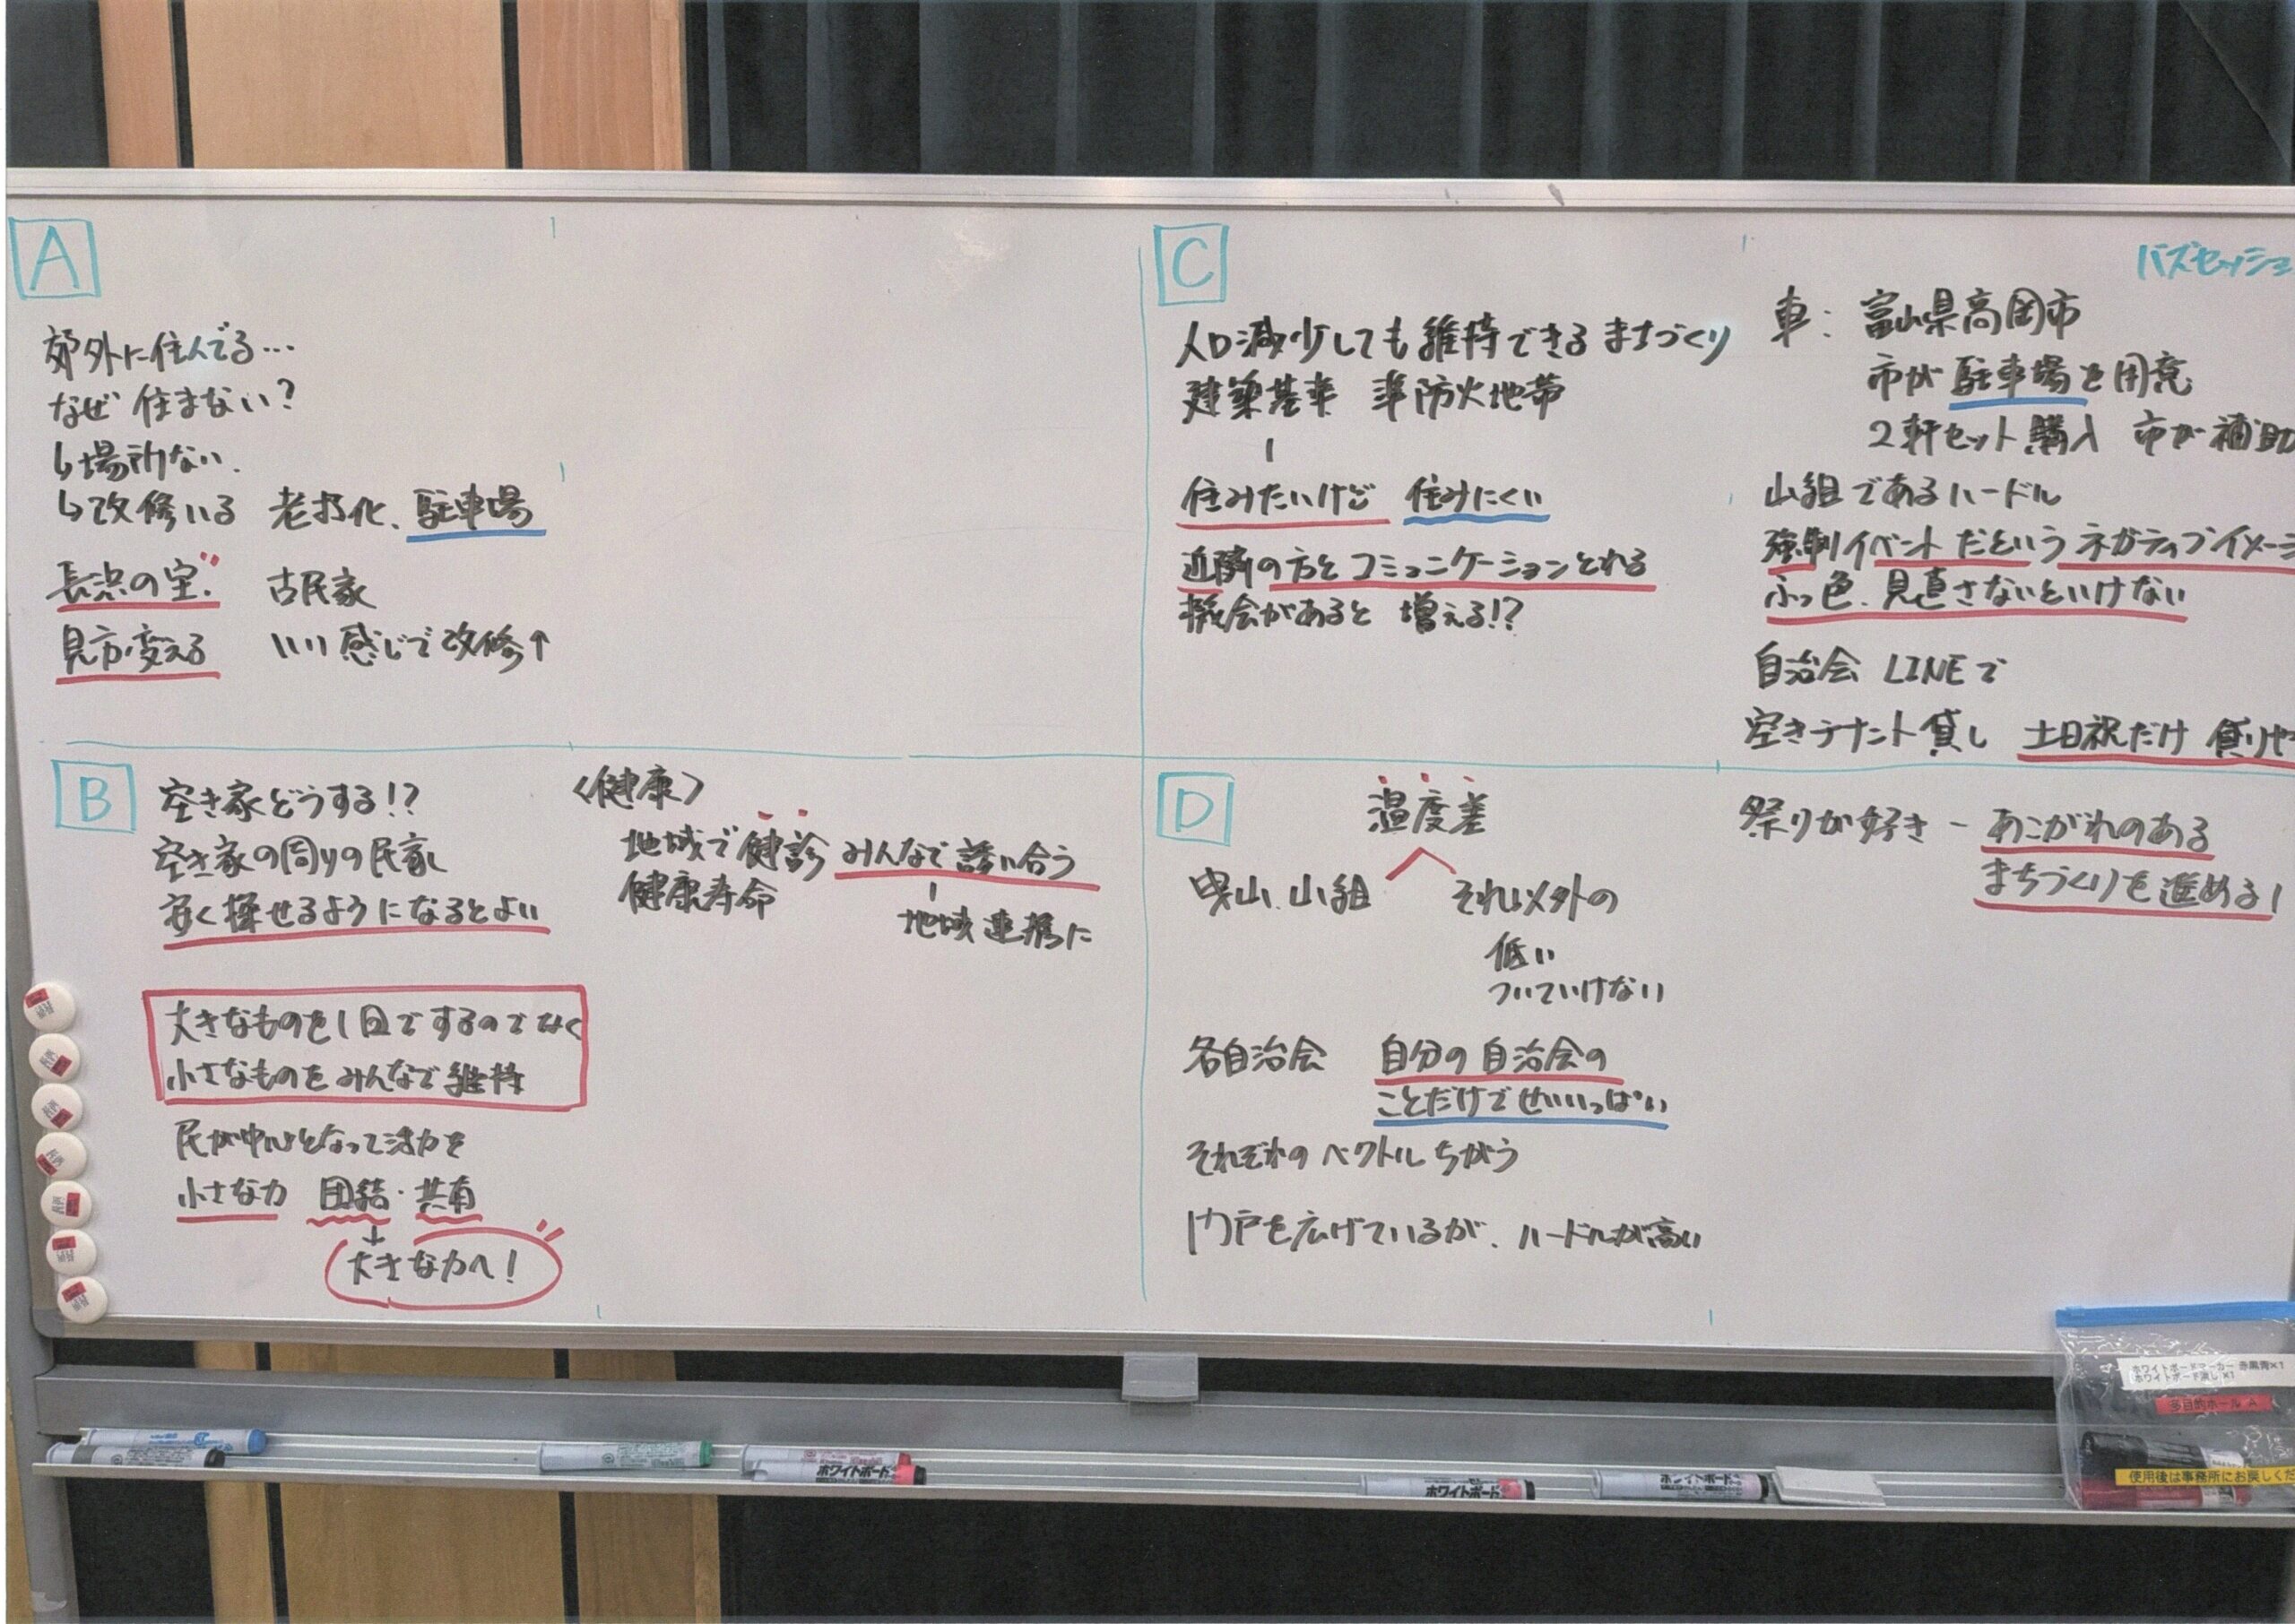 A
郊外に住んでる…
なぜ 住まない?
↳場所ない.
↳改修いる 老朽化、駐車場
長浜の宝. 古民家
見方変える いい感じで改修↑
B
空き家どうする!?
空き家の周りの民家
安く探せるようになるとよい
大きなものを1回でするのでなく
小さなものをみんなで維持
民が中心となって活力を
小さな力 団結・共有
↓
大きな力へ!
〈健康〉
地域で健診 みんなで誘い合う
健康寿命
地域連携に
C
人口減少しても維持できるまちづくり
建築基準 準防火地帯
住みたいけど 住みにくい
近隣の方とコミュニケーションとれる
機会があると 増える!?
バズセッショ
車: 富山県高岡市
市が駐車場を用意
2軒セット購入 市が補助
山組であるハードル
強制イベントだというネガティブイメージ
ふっ色、見直さないといけない
自治会 LINEで
空きテナント貸し 土日祝だけ 借りや
D
温度差
曳山、山組 それ以外の
低い
ついていけない
各自治会 自分の自治会の
ことだけでせいいっぱい
それぞれのベクトルちがう
門戸を広げているが、ハードルが高い
祭りが好き - あこがれのある
まちづくりを進める!
ホワイトボードマーカー 赤黒青×1
ホワイトボード消し ×1
多目的ホール A
使用後は事務所にお戻しくだ
ホワイトボード
ホワイトボード
ホワイトボード